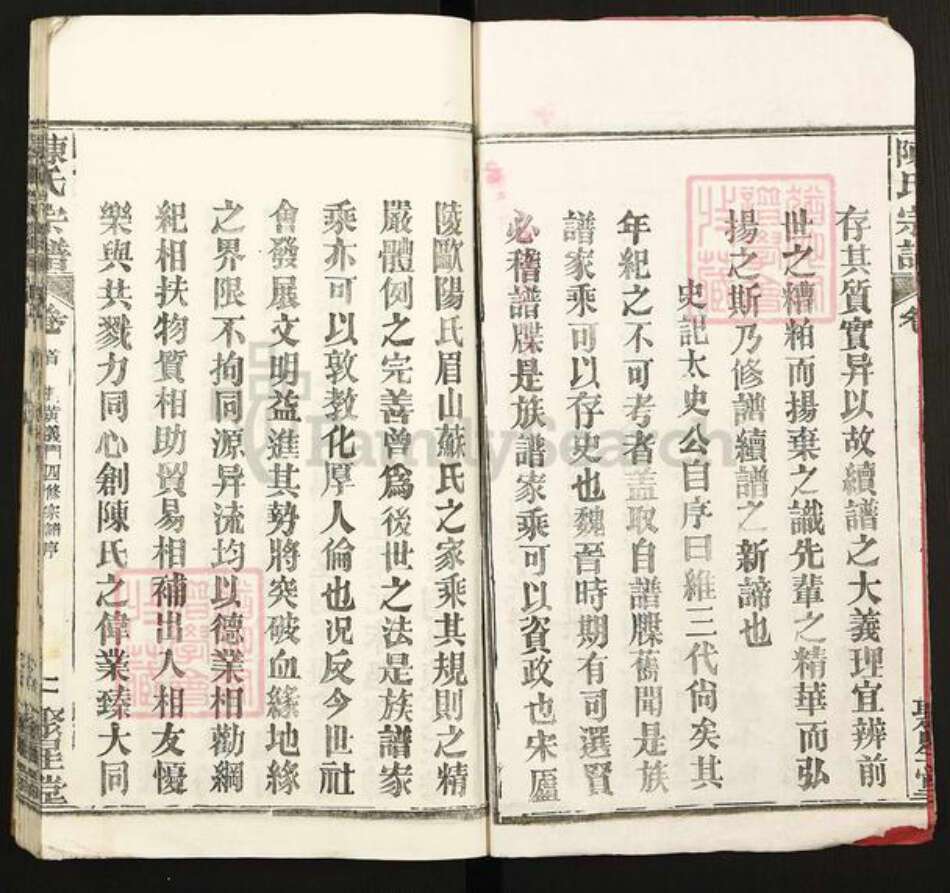 存其質實异以故續譜之大義理宜辨前
世之糟粕而揚棄之識先輩之精華而弘
揚之斯乃修譜續譜之新諦也
史記太史公自序曰維三代尙矣其
年紀之不可考者蓋取自譜牒舊聞是族
譜家乘可以存史也魏晉時期有司選賢
必稽譜牒是族譜家乘可以資政也宋廬
陵歐陽氏眉山蘇氏之家乘其規則之精
嚴體例之完善曾爲後世之法是族譜家
乘亦可以敦教化厚人倫也况反今世社
會發展文明益進其勢將突破血緣地緣
之界限不拘同源异流均以德業相勸綱
紀相扶物質相助貿易相補出入相友憂
樂與共戮力同心創陳氏之偉業臻大同
陳氏宗譜
卷首
四修宗譜序
二
聚星堂
陳氏宗譜
FamilySearch